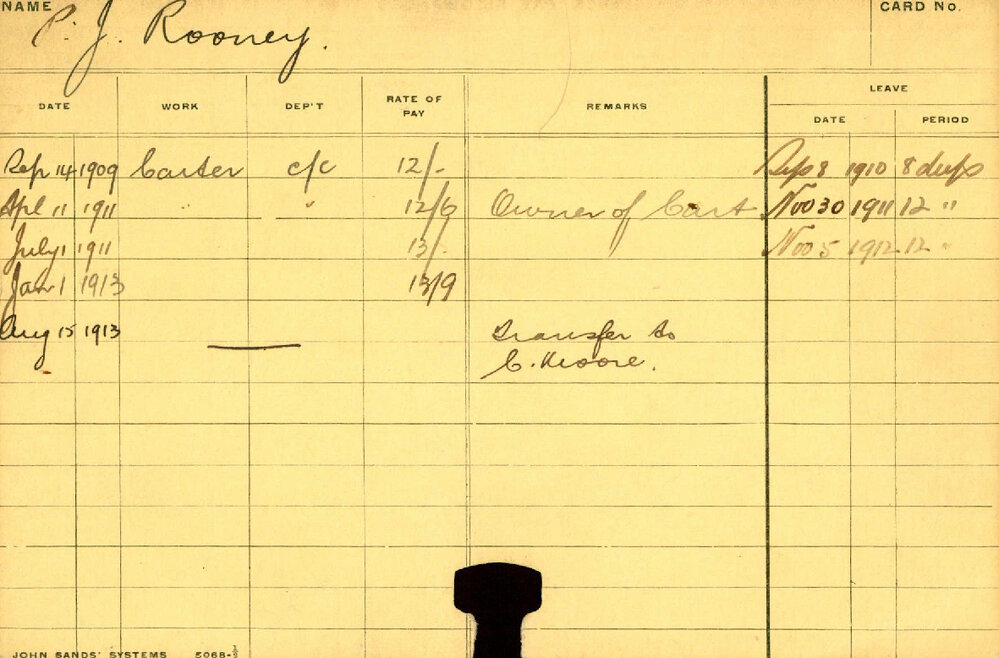 NAME P. J. Rooney. CARD No.
LEAVE
DATE WORK DEP'T RATE OF PAY REMARKS DATE PERIOD
Sep 14 1909 Carter c/c 12/- Sep 8 1910 8 days
Apl 11 1911 " " 12/6 Owner of Cart Nov 30 1911 12 "
July 1 1911 13/- Nov 5 1912 12 "
Jan 1 1913 13/9
Aug 15 1913 Transfer to
C. Moore.
JOHN SANDS' SYSTEMS 5068-½